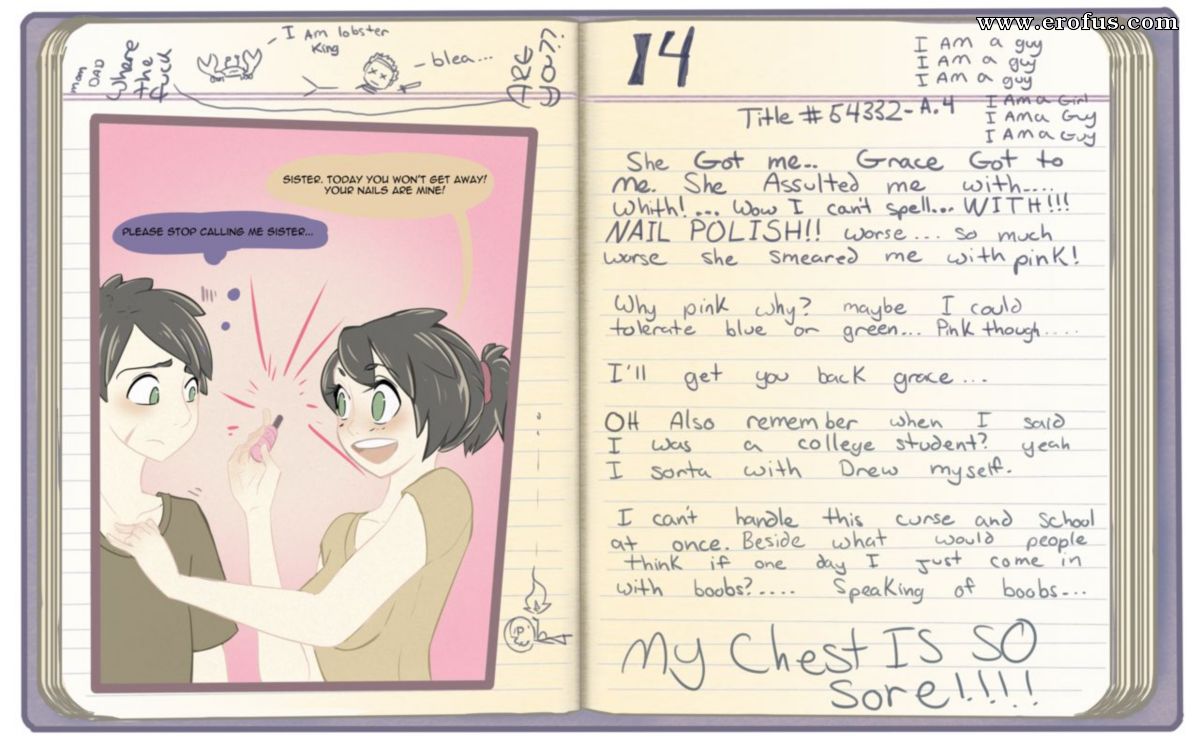 www.erofus.com
mom
DAD
Where
the
Fuck
ARE
YOU??
I Am lobster
King
- blea...
SISTER. TODAY YOU WON'T GET AWAY!
YOUR NAILS ARE MINE!
PLEASE STOP CALLING ME SISTER...
14
I AM a guy
I AM a guy
I AM a guy
I Am a Girl
I Am a Guy
I Am a Guy
Title # 54332-A.4
She Got me.. Grace Got to
me. She Assulted me with....
Whith!... Wow I can't spell... WITH!!!
NAIL POLISH!! worse... so much
worse she smeared me with pink!
Why pink why? maybe I could
tolerate blue or green... Pink though....
I'll get you back grace...
OH Also remember when I said
I was a college student? yeah
I sorta with Drew myself.
I can't handle this curse and school
at once. Beside what would people
think if one day I just come in
with boobs?..... Speaking of boobs...
My Chest IS SO
Sore!.!!!